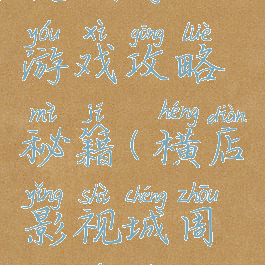 yóu xì gōng lüè
游戏攻略
mì jí héng diàn
秘籍(横店
yǐng shì chéng zhōu
影视城周